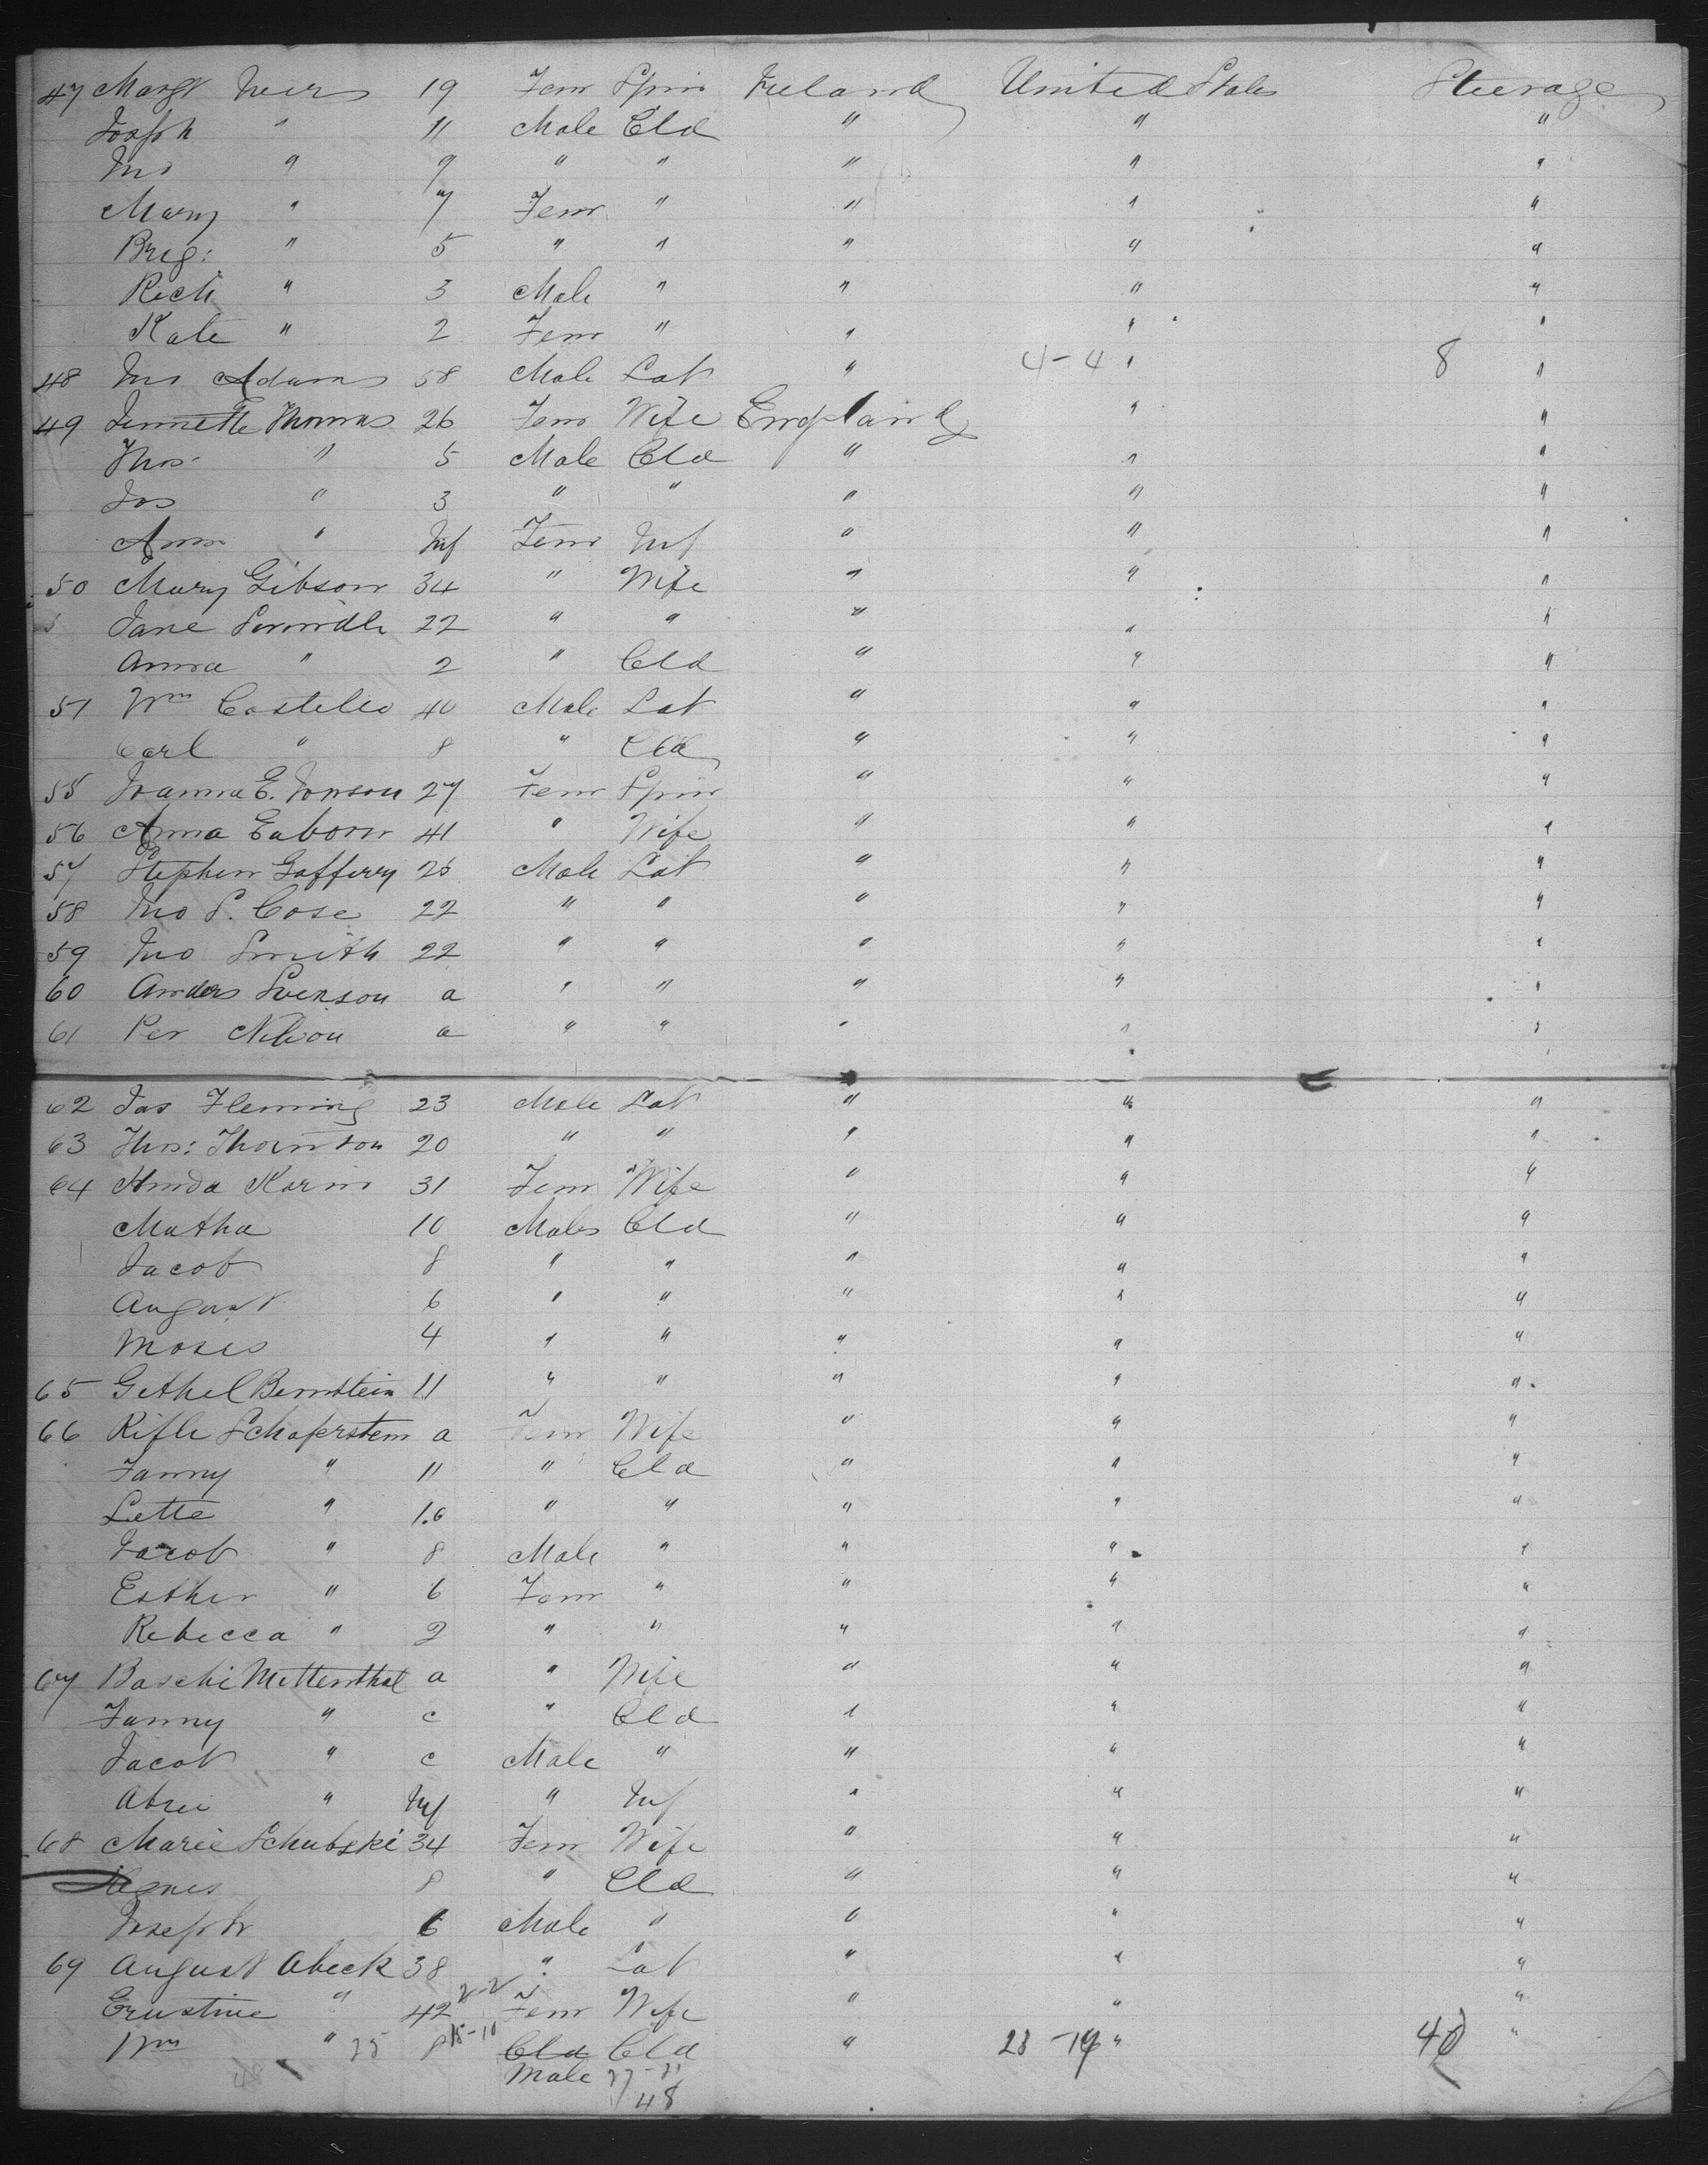 47 Margt Neer 19 Fem Spin Ireland United States Steerage
Joseph " 11 Male Cld " " "
Jno " 9 " " " " "
Mary " 7 Fem " " " "
Breg: " 5 " " " " "
Rich " 3 Male " " " "
Kate " 2 Fem " " " "
48 Jno Adams 58 Male Lab " 4-4 " 8 "
49 Jennette Thomas 26 Fem Wife England " "
Thos " 5 Male Cld " " "
Jas " 3 " " " " "
Ann " Inf Fem Inf " " "
50 Mary Gibson 34 " Wife " " "
Jane 22 " " " " "
Anna " 2 " Cld " " "
51 Wm Costello 40 Male Lab " " "
Carl " 8 " Cld " " "
55 Joanna E. Jonson 27 Fem Spin " " "
56 Anna Eaborn 41 " Wife " " "
57 Stephen Gafferry 25 Male Lab " " "
58 Jno S. Cose 22 " " " " "
59 Jno Smith 22 " " " " "
60 Anders Svenson a " " " " "
61 Per Nilson a " " " " "
62 Jas Fleming 23 Male Lab " " "
63 Thos: Thornton 20 " " " " "
64 Hinda Korin 31 Fem Wife " " "
Matha 10 Males Cld " " "
Jacob 8 " " " " "
August 6 " " " " "
Moses 4 " " " " "
65 Gethel Bernstein 11 " " " " "
66 Rifle Schaferstein a Fem Wife " " "
Fanny " 11 " Cld " " "
Lette " 10 " " " " "
Jacob " 8 Male " " " "
Esther " 6 Fem " " " "
Rebecca " 2 " " " " "
67 Baschi Mittenthal a " Wife " " "
Fanny " c " Cld " " "
Jacob " c Male " " " "
Abrei " Inf " Inf " " "
68 Marie Schubski 34 Fem Wife " " "
Agnes 8 " Cld " " "
Joseph 6 Male " " " "
69 August Abeck 38 " Lab " " "
Ernstine " 42 Fem Wife " " "
Wm " 25 8 15-10 Cld Cld " 23-19 " 40 "
48 Male 27-21
48